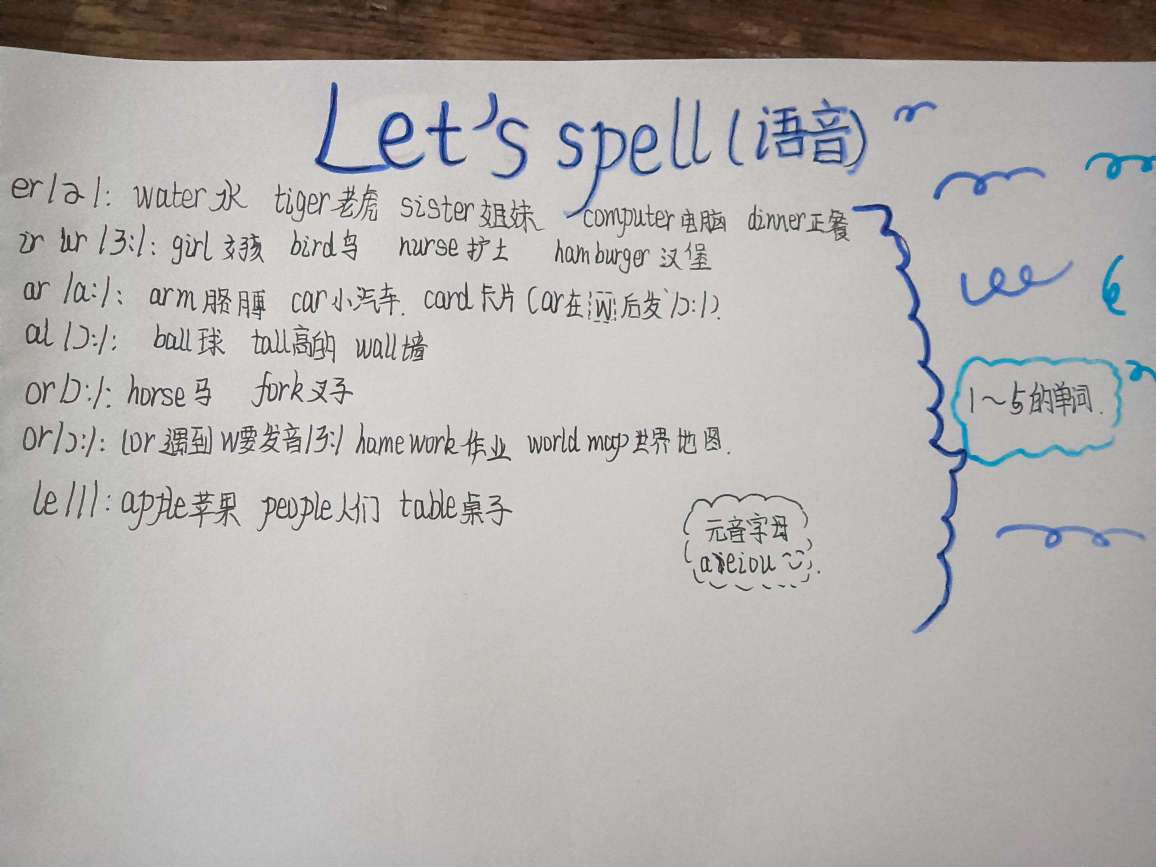 Let's spell (语音)
er/ə/: water水 tiger老虎 sister姐妹 computer电脑 dinner正餐
ir ur /3:/: girl女孩 bird鸟 nurse护士 hamburger汉堡
ar /a:/: arm胳膊 car小汽车. card卡片 (ar在w后发/ɔ:/).
al /ɔ:/: ball球 tall高的 wall墙
or /ɔ:/: horse马 fork叉子
or/ɔ:/: (or遇到w要发音/3:/ homework作业 world map世界地图.
le /l/: apple苹果 people人们 table桌子
1～5的单词.
元音字母
aeiou